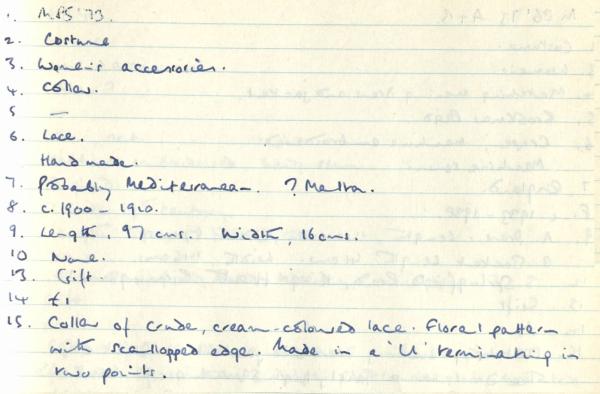 1. M85'73.
2. Costume
3. Women's accessories.
4. Collar.
5 —
6. Lace.
Handmade.
7. Probably Mediterranean. ? Malta.
8. c.1900 – 1910.
9. Length, 97 cms. Width, 16 cms.
10 None.
13. Gift.
14 £1
15. Collar of crude, cream-coloured lace. Floral pattern
with scallopped edge. Made in a 'U' terminating in
two points.